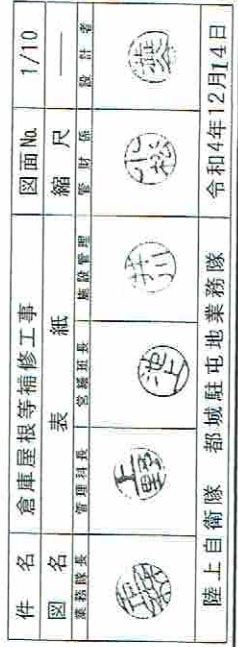 件名 倉庫屋根等補修工事 図面No. 1/10
図名 表紙 縮尺 ―
業務隊長 管理科長 営繕班長 施設管理 管財係 設計者
上野 池上 小松
陸上自衛隊 都城駐屯地業務隊 令和4年12月14日